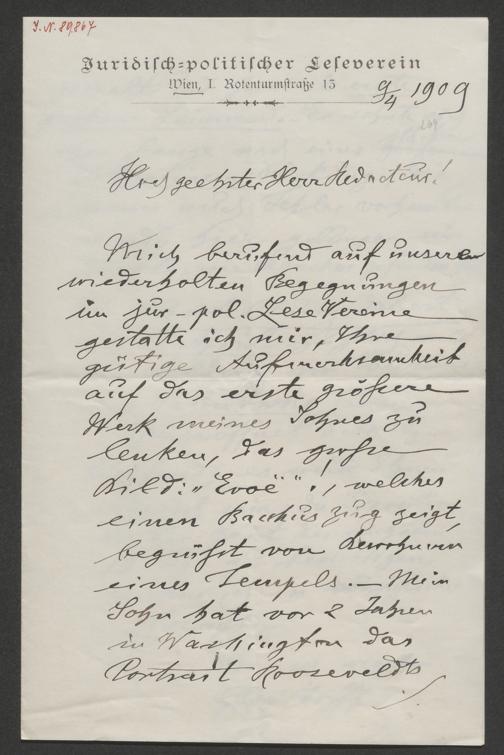 I. N. 89.867
Juridisch-politischer Leseverein
Wien, I. Rotenturmstraße 13
9/4 1909
Hochgeehrter Herr Redacteur!
Mich berufend auf unseren
wiederholten Begegnungen
im jur-pol. Lese Vereine
gestatte ich mir, Ihre
gütige Aufmerksamkeit
auf das erste größere
Werk meines Sohnes zu
lenken, das große
Bild: "Evoë"!, welches
einen Bacchuszug zeigt,
begrüßt von Bewohnern
eines Tempels. — Mein
Sohn hat vor 2 Jahren
in Washington das
Portrait Rooseveldts